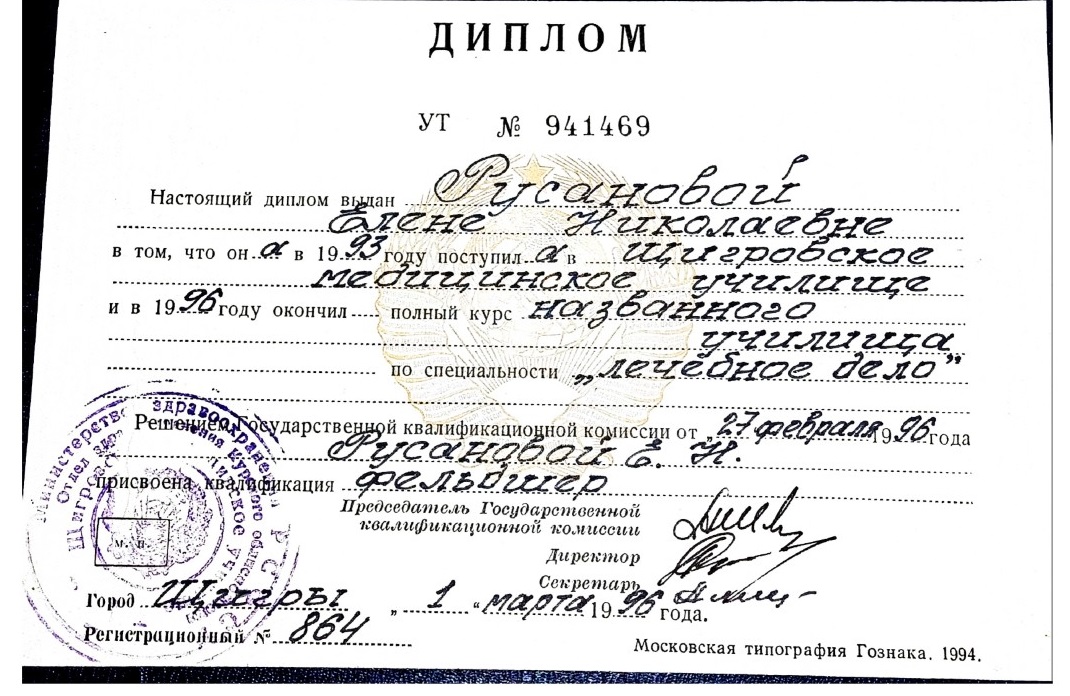 ДИПЛОМ
УТ № 941469
Настоящий диплом выдан Русановой
Елене Николаевне
в том, что он а в 1993 году поступил а в Щигровское
медицинское училище
и в 1996 году окончил полный курс названного
училища
по специальности „лечебное дело”
Решением Государственной квалификационной комиссии от „27 февраля 1996 года
Русановой Е. Н.
присвоена квалификация фельдшер
Председатель Государственной
квалификационной комиссии
Директор
Секретарь
Город Щигры „ 1 “ марта 1996 года.
Регистрационный № 864
Московская типография Гознака. 1994.
м. п.
Министерство здравоохранения РСФСР
Отдел Курского